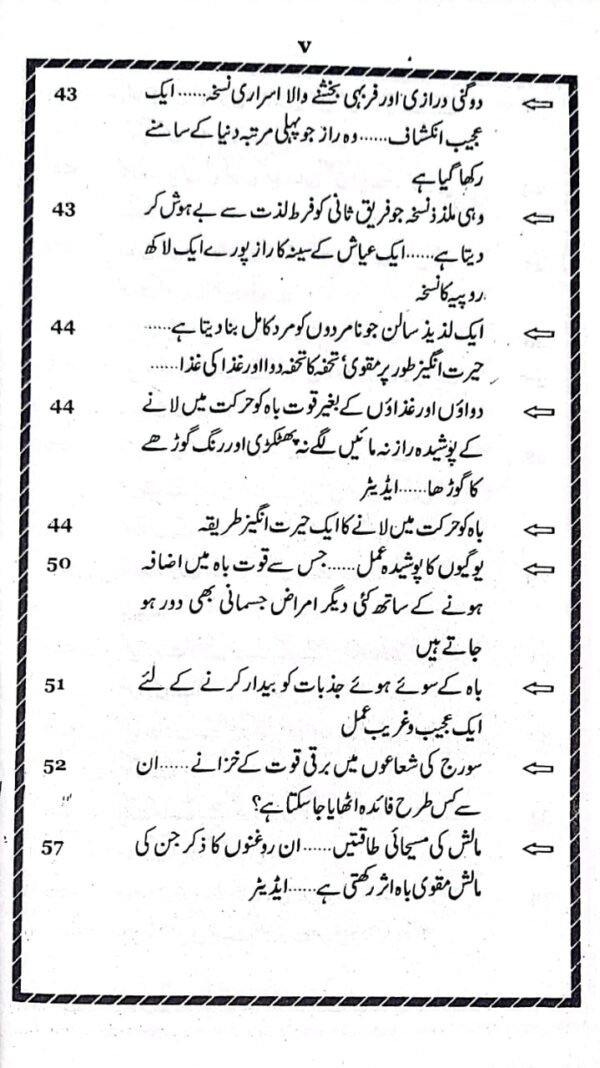 ۷
دوگنی درازی اور فربہی بخشنے والا اسراری نسخہ......ایک 43
عجیب انکشاف......وہ راز جو پہلی مرتبہ دنیا کے سامنے
رکھا گیا ہے
وہی ملذذ نسخہ جو فریق ثانی کو فرط لذت سے بے ہوش کر 43
دیتا ہے......ایک عیاش کے سینہ کا راز پورے ایک لاکھ
روپیہ کا نسخہ
ایک لذیذ سالن جو نامردوں کو مرد کامل بنا دیتا ہے...... 44
حیرت انگیز طور پر مقوی' تحفہ کا تحفہ دوا اور غذا کی غذا......
دواؤں اور غذاؤں کے بغیر قوت باہ کو حرکت میں لانے 44
کے پوشیدہ راز نہ مائیں لگے نہ پھٹکڑی اور رنگ گوڑھے
کا گوڑھا......ایڈیٹر
باہ کو حرکت میں لانے کا ایک حیرت انگیز طریقہ 44
یوگیوں کا پوشیدہ عمل......جس سے قوت باہ میں اضافہ 50
ہونے کے ساتھ کئی دیگر امراض جسمانی بھی دور ہو
جاتے ہیں
باہ کے سوئے ہوئے جذبات کو بیدار کرنے کے لئے 51
ایک عجیب و غریب عمل
سورج کی شعاعوں میں برقی قوت کے خزانے......ان 52
سے کس طرح فائدہ اٹھایا جا سکتا ہے؟
مالش کی مسیحائی طاقتیں......ان روغنوں کا ذکر جن کی 57
مالش مقوی باہ اثر رکھتی ہے......ایڈیٹر